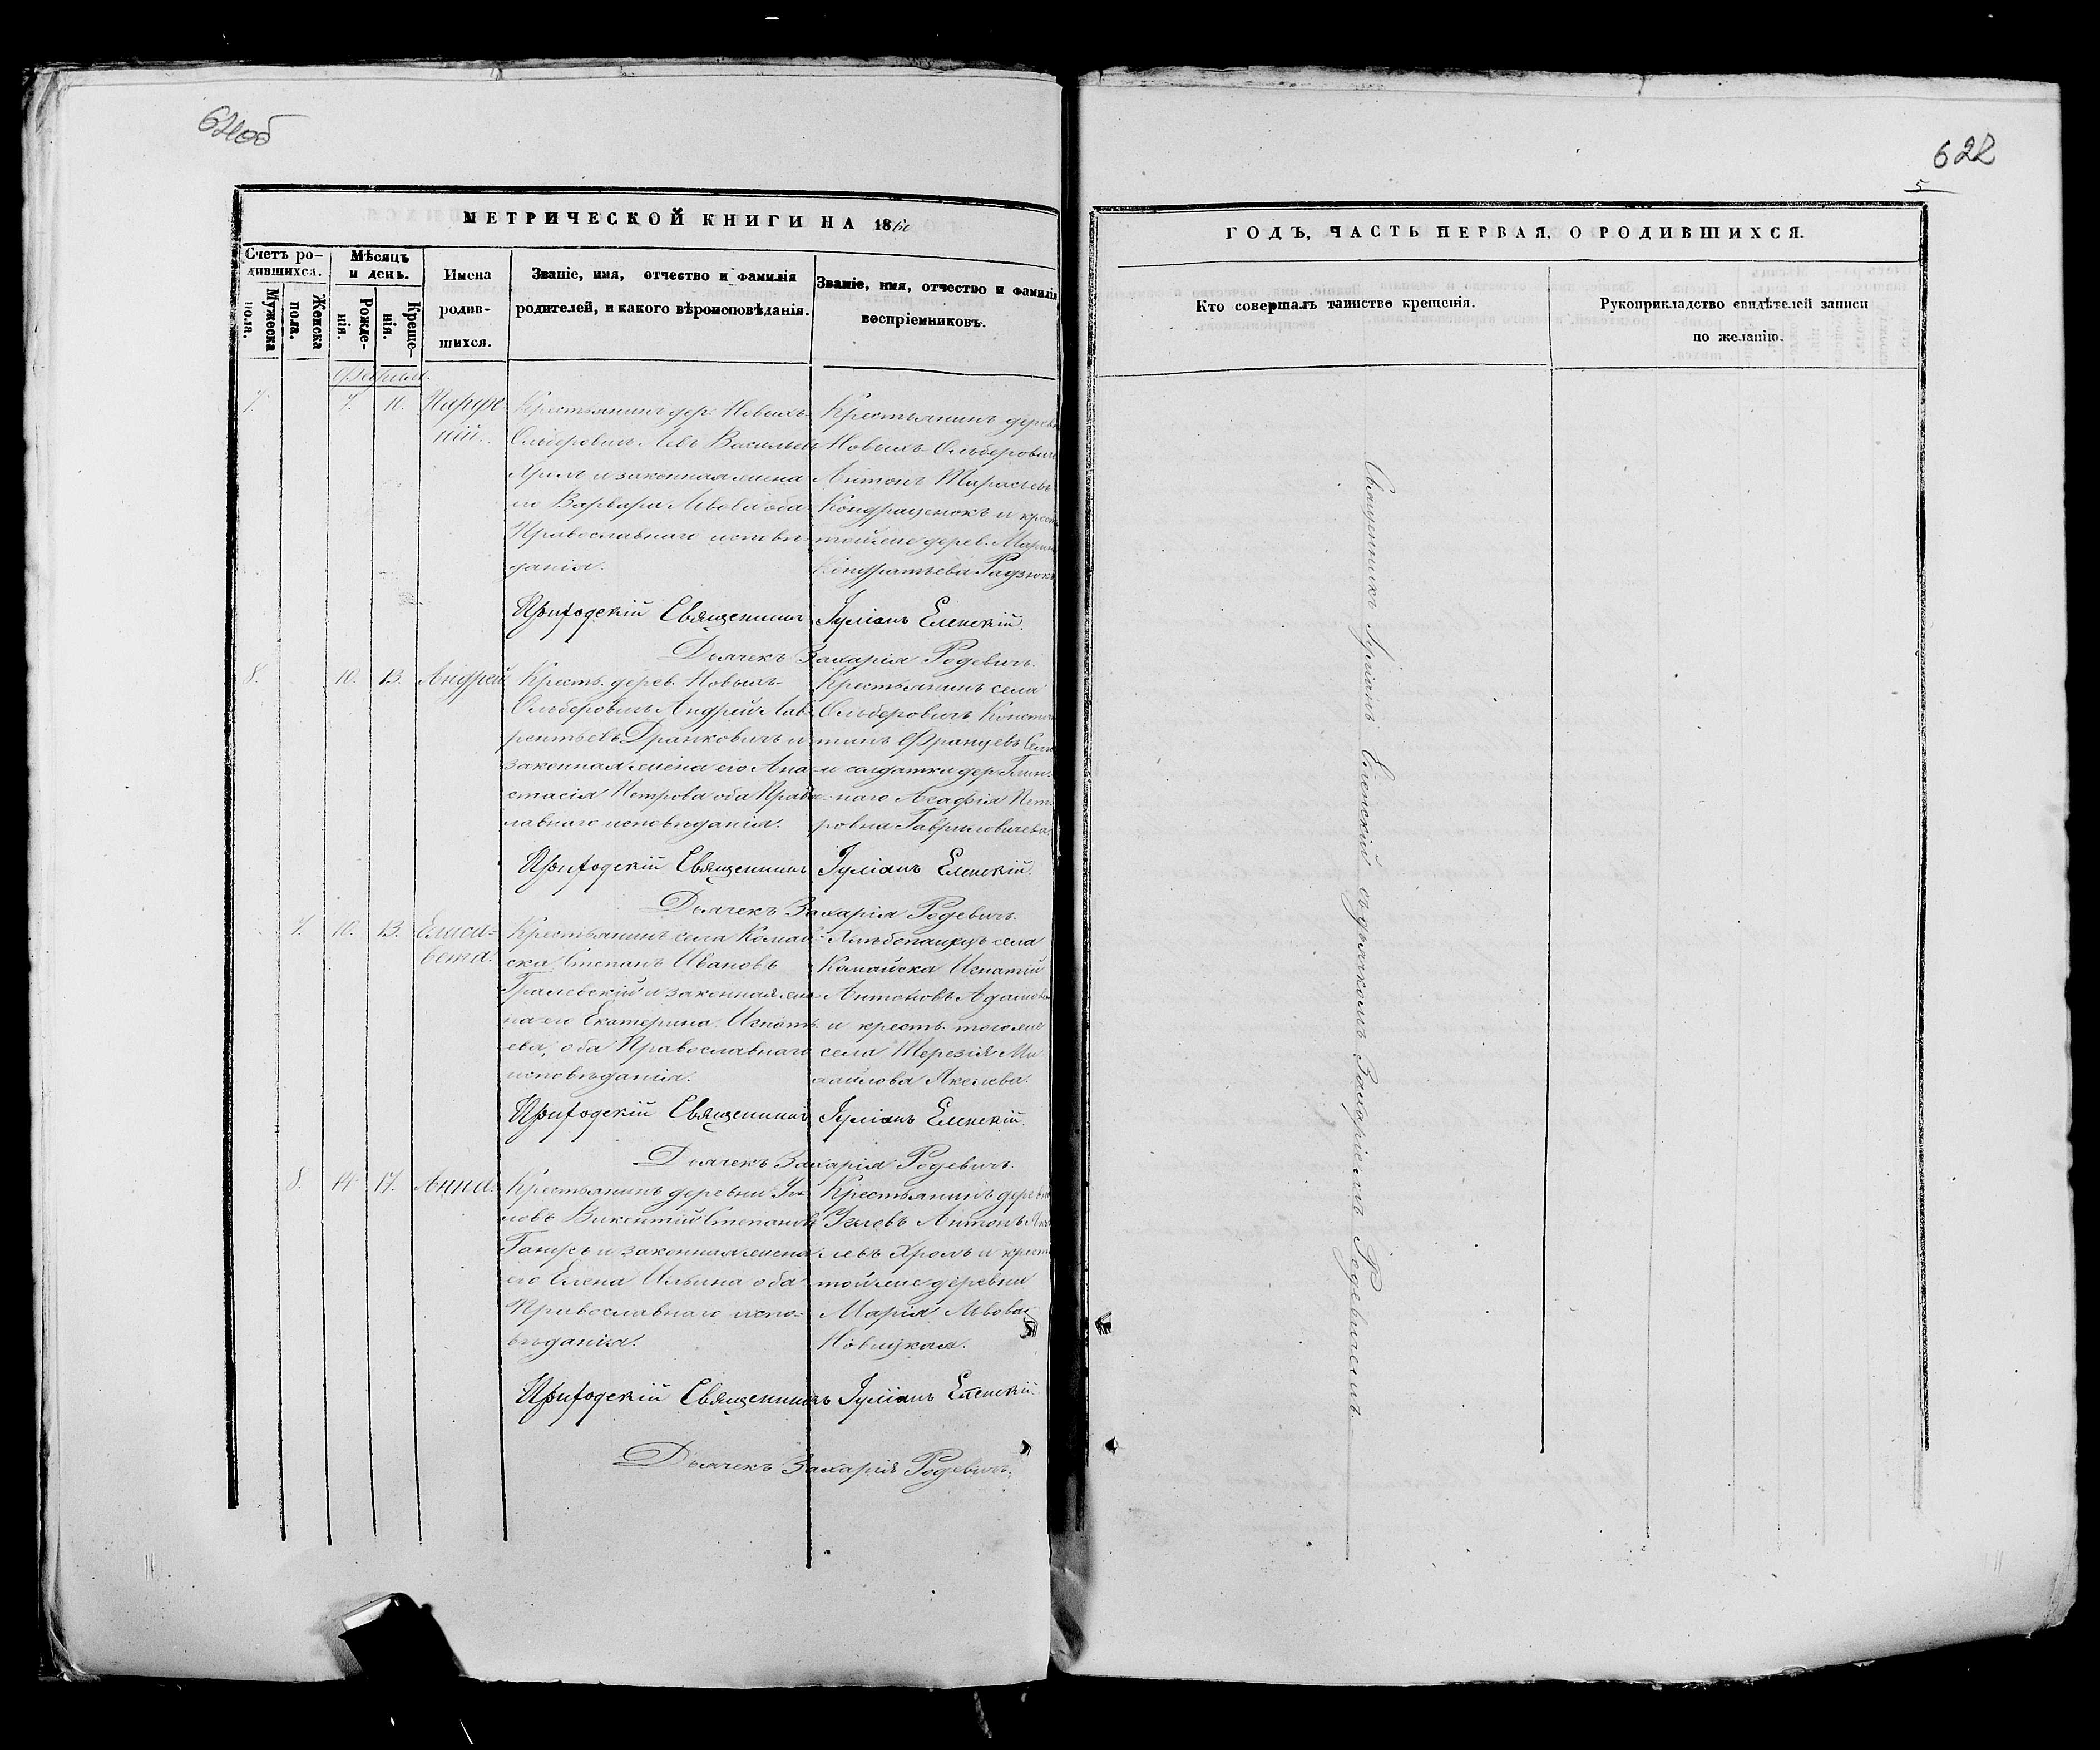 622
5
МЕТРИЧЕСКОЙ КНИГИ НА 1860
Счетъ ро-
дившихся.
Мужеска
пола.
Женска
пола.
Мѣсяцъ
и день.
Рожде-
нія.
Креще-
нія.
Имена
родив-
шихся.
Званіе, имя, отчество и фамилія
родителей, и какого вѣроисповѣданія.
Званіе, имя, отчество и фамилія
воспріемниковъ.
7. 7. 11. Парфе-
ній.
Крестьянинъ дер. Новыхъ
Ольберовичъ Левъ Васильевъ
и законная жена
его Варвара Львова оба
Православнаго исповѣ-
данія.
Крестьянинъ дерев
Новыхъ Ольберовичъ
Антонъ Тарасьевъ
Кондраценокъ и крест
тойже дерев. Марія
Кондратьева Радзюкъ
Приходскій Священникъ Іуліанъ Еленскій.
Дьячекъ Захарія Родевичъ.
8. 10. 13. Андрей
Кресть. дерев. Новыхъ
Ольберовичъ Андрей Лав-
рентьевъ Дранковичъ и
законная жена его Ана-
стасія Петрова оба Правос-
лавнаго исповѣданія.
Крестьянинъ села
Ольберовичъ Констан
тинъ Францевъ
и солдатка дер.
наго Агафія Пет-
ровна Гавриловичева
Приходскій Священникъ Іуліанъ Еленскій.
Дьячекъ Захарія Родевичъ.
7. 10. 13. Елиса-
вета.
Крестьянинъ села Комай-
ска Степанъ Ивановъ
Гралевскій и законная же-
на его Екатерина Игнать-
ева, оба Православнаго
исповѣданія.
Хлѣбопашецъ села
Комайска Игнатій
Антоновъ Адамов
и кресть. тогоже
села Терезія Ми
хайлова Якелева.
Приходскій Священникъ Іуліанъ Еленскій.
Дьячекъ Захарія Родевичъ.
8. 14. 17. Анна.
Крестьянинъ деревни Уг-
ловъ Викентій Степановъ
и законная жена
его Елена Ильина оба
Православнаго испо-
вѣданія.
Крестьянинъ деревни
Угловъ Антонъ Як
левъ Хролъ и крест
тойже деревни
Марія Львова
Новицкая.
Приходскій Священникъ Іуліанъ Еленскій
Дьячекъ Захарія Родевичъ.
ГОДЪ, ЧАСТЬ ПЕРВАЯ, О РОДИВШИХСЯ.
Кто совершалъ таинство крещенія.
Рукоприкладство свидѣтелей записи
по желанію.
Священникъ Іуліанъ Еленскій съ дьячкомъ Захаріемъ Родевичемъ.